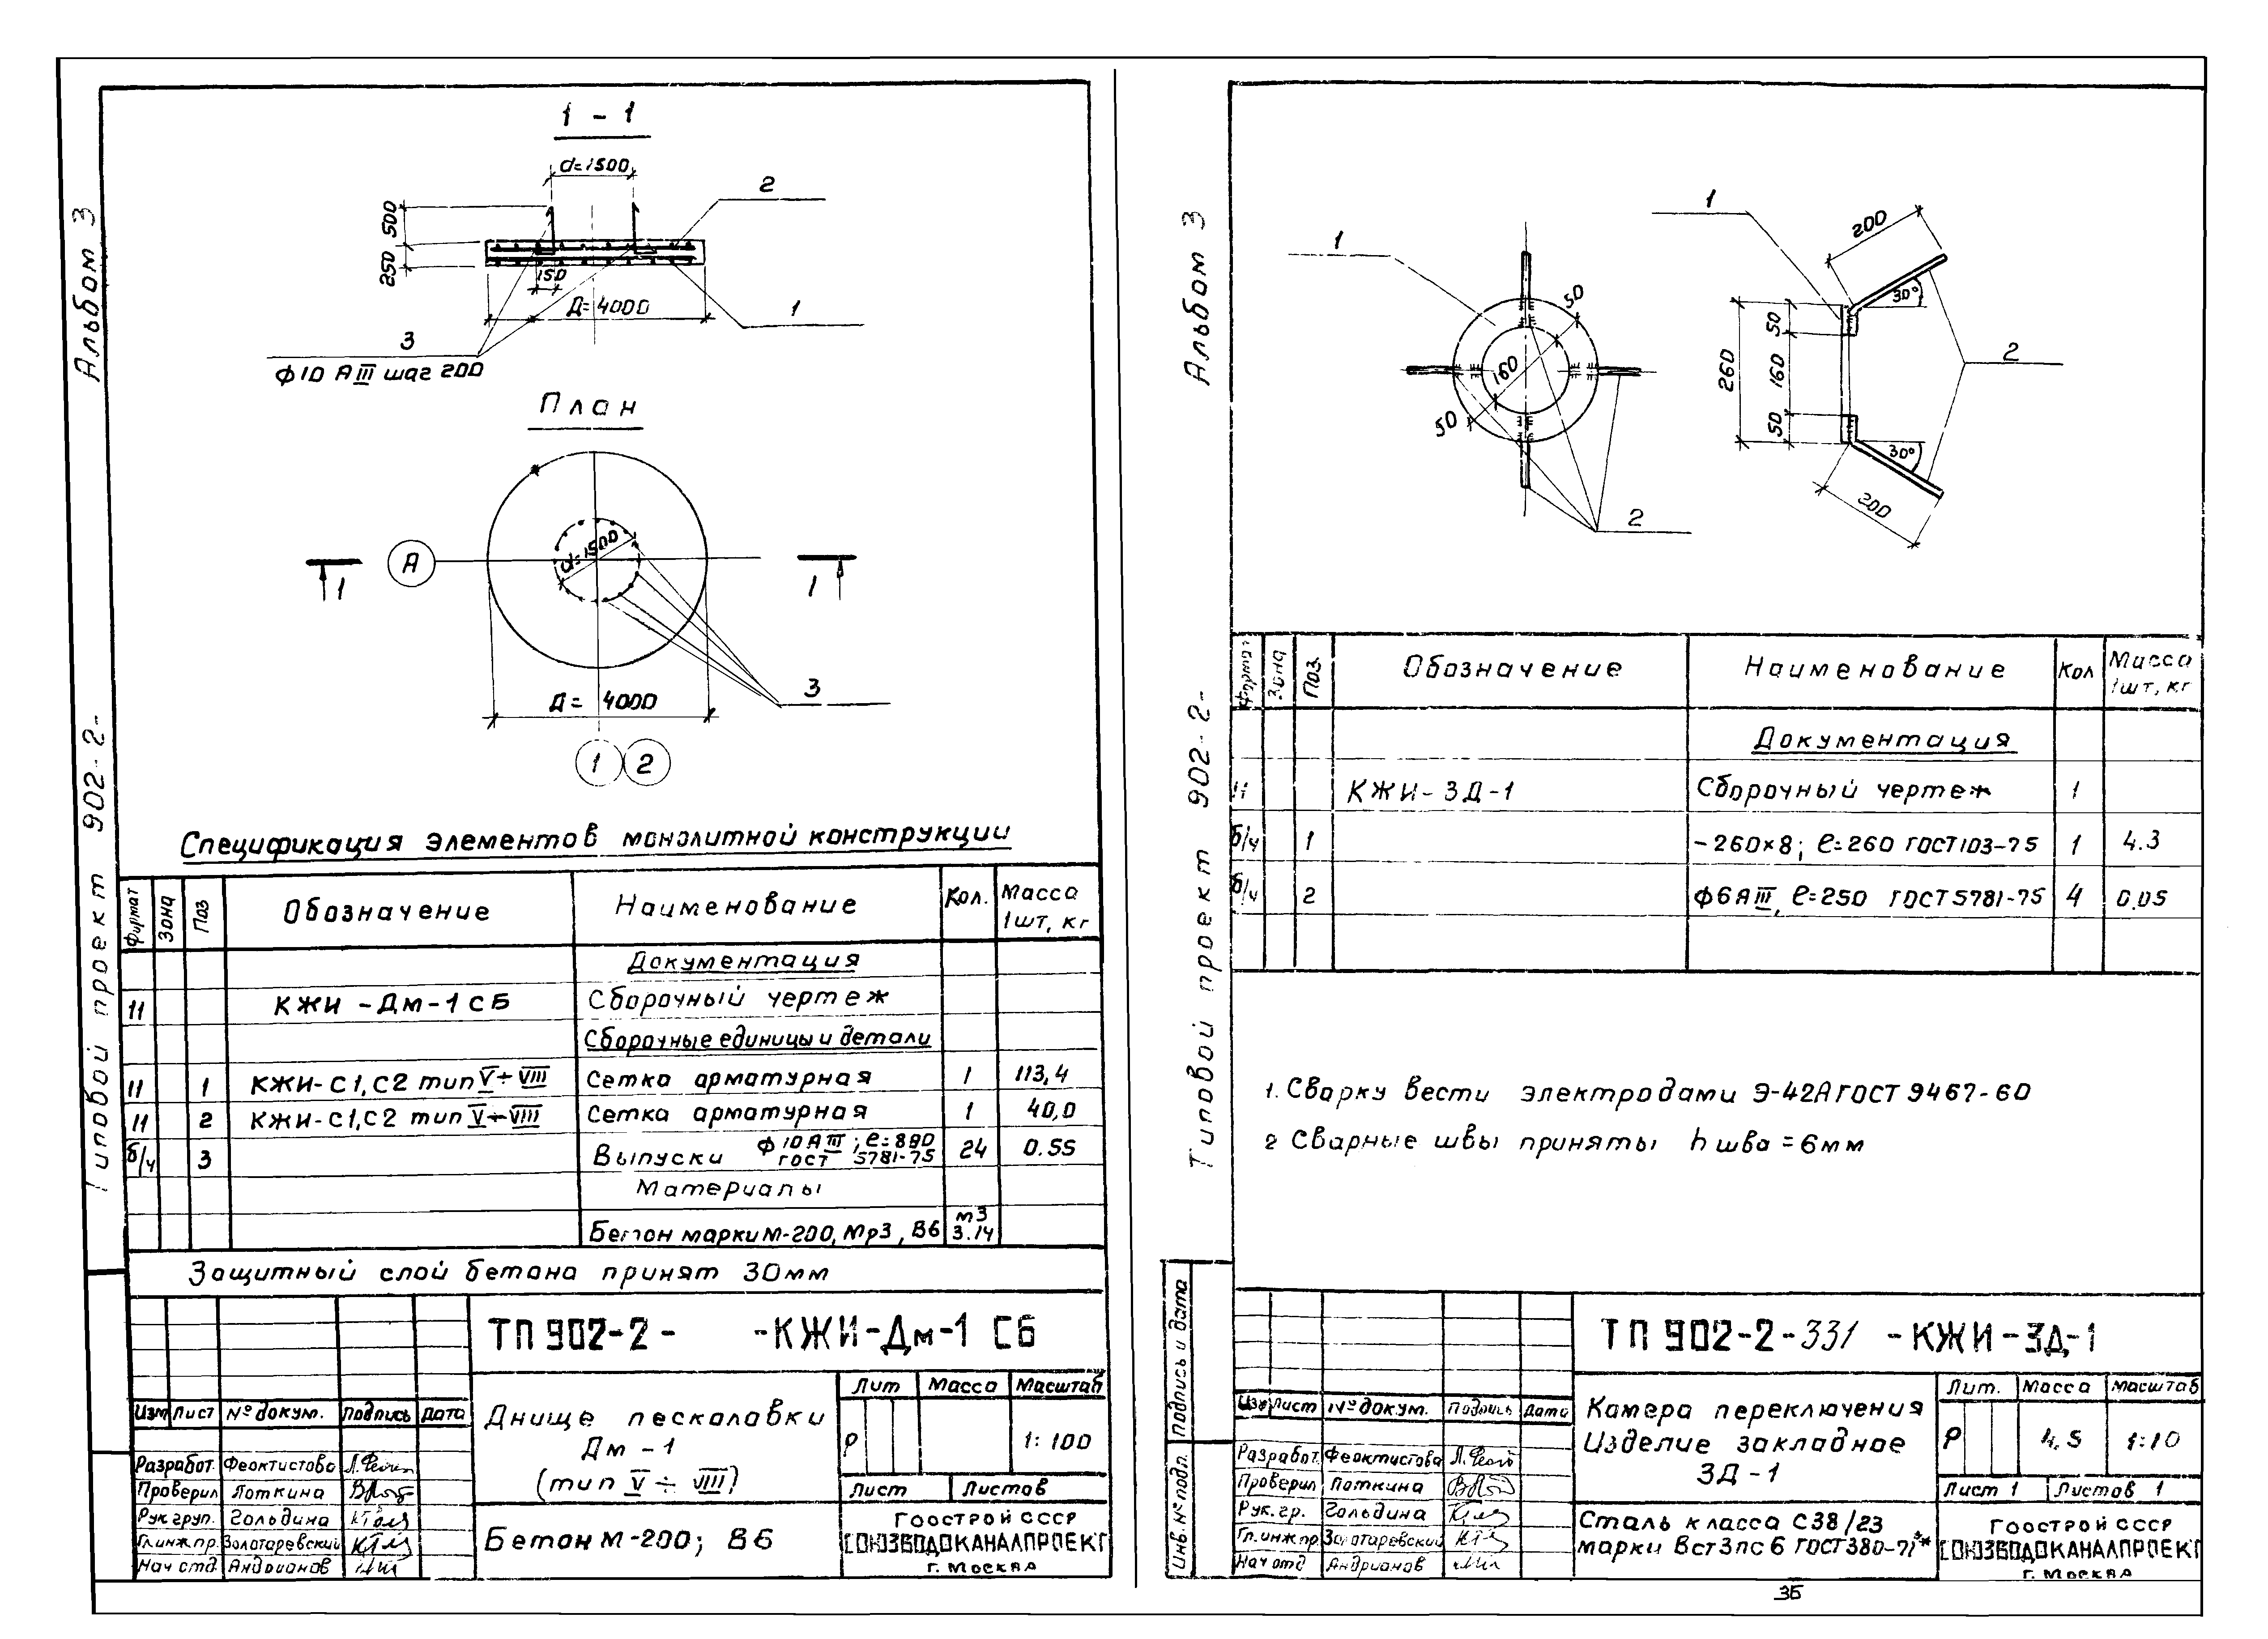 Альбом 3
Типовой проект 902-2-
1 - 1
d=1500
500
250
150
Д= 4000
2
1
3
ф10 АIII шаг 200
План
А
d=1500
1
1
3
Д= 4000
1 2
Спецификация элементов монолитной конструкции
Формат Зона Поз Обозначение Наименование Кол. Масса 1шт, кг
Документация
11 КЖИ -Дм-1 СБ Сборочный чертеж
Сборочные единицы и детали
11 1 КЖИ-С1,С2 тип V÷VIII Сетка арматурная 1 113,4
11 2 КЖИ-С1,С2 тип V÷VIII Сетка арматурная 1 40,0
б/ч 3 Выпуски ф10АIII; ℓ=890 ГОСТ 5781-75 24 0.55
Материалы
Бетон марки М-200, Мрз, В6 м3 3.14
Защитный слой бетона принят 30мм
ТП 902-2- -КЖИ-Дм-1 СБ
Изм Лист № докум. Подпись Дата
Разработ. Феоктистова
Проверил Лоткина
Рук груп. Гольдина
Гл.инж.пр. Золотаревский
Нач отд. Андрианов
Днище песколовки
Дм -1
(тип V ÷ VIII)
Бетон М-200; В6
Лит Масса Масштаб
Р 1:100
Лист Листов
ГОССТРОЙ СССР
СОЮЗВОДОКАНАЛПРОЕКТ
г. Москва
Альбом 3
Типовой проект 902-2-
1
50
160
50
2
1
200
30°
260
50
160
50
30°
200
2
Формат Зона Поз. Обозначение Наименование Кол Масса 1шт, кг
Документация
11 КЖИ-ЗД-1 Сборочный чертеж 1
б/ч 1 -260×8; ℓ=260 ГОСТ103-75 1 4.3
б/ч 2 ф6АIII, ℓ=250 ГОСТ5781-75 4 0.05
1. Сварку вести электродами Э-42А ГОСТ 9467-60
2 Сварные швы приняты h шва = 6мм
Подпись и дата
Инв.№ подл.
ТП 902-2-331 -КЖИ-ЗД-1
Изм Лист № докум. Подпись Дата
Разработ. Феоктистова
Проверил Лоткина
Рук.гр. Гольдина
Гл.инж.пр. Золотаревский
Нач отд Андрианов
Камера переключения
Изделие закладное
ЗД-1
Сталь класса С38/23
марки ВСт3пс6 ГОСТ380-71*
Лит. Масса Масштаб
Р 4,5 1:10
Лист 1 Листов 1
ГОССТРОЙ СССР
СОЮЗВОДОКАНАЛПРОЕКТ
г. Москва